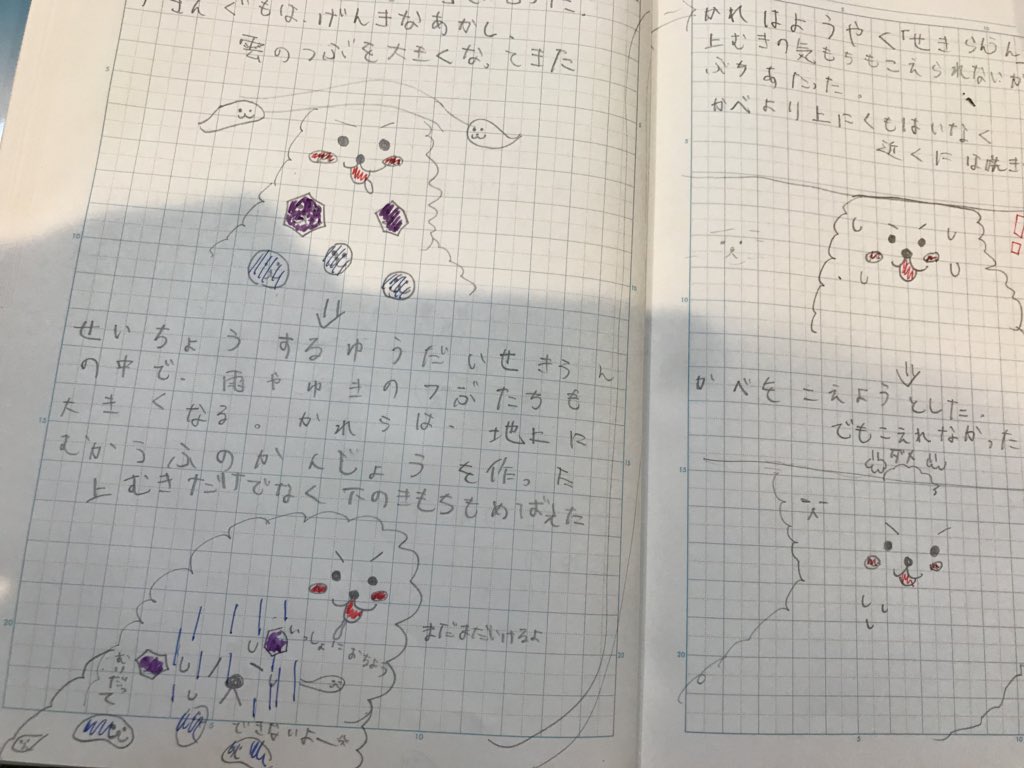 きんぐもは、げんきなあかし、
雲のつぶを大きくなってきた
せいちょうするゆうだいせきらん
の中で、雨やゆきのつぶたちも
大きくなる。かれらは、地上に
むかうふのかんじょうを作った
上むきだけでなく下のきもちもめばえた
まだまだいけるよ
おちよう
できないよー
かれはようやく「せきらん
上むきの気もちもこえられないか
ぶちあたった。
かべより上にくもはいなく
近くには
かべをこえようとした。
でもこえれなかった
ダメ
5
10
15
20
5
10
20
10
15
20
5